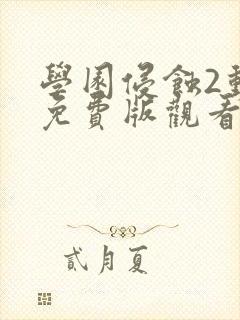 學園侵蝕2動
免費版觀看
貳月夏